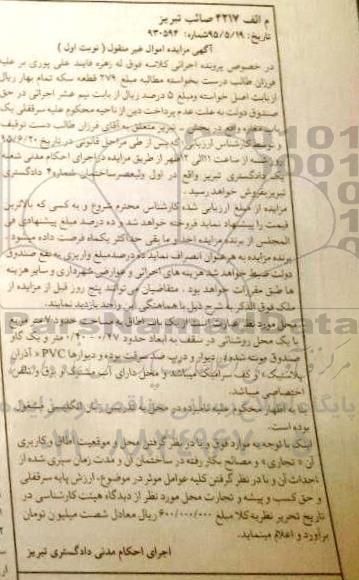 م الف ۴۲۱۷ صائب تبریز
تاریخ: ۹۵/۵/۱۹ شماره: ۹۳۰۵۹۴
آگهی مزایده اموال غیر منقول ( نوبت اول )
در خصوص پرونده اجرائی کلاسه فوق له زهره فایند علی پوری بر علیه
فرزان طالب درست بخواسته مطالبه مبلغ ۲۷۹ قطعه سکه تمام بهار ریال
از بابت اصل خواسته ومبلغ ۵ درصد ریال از بابت نیم عشر اجرائی در حق
صندوق دولت به علت عدم پرداخت دین از ناحیه محکوم علیه سرقفلی یک
تبریز متعلق به آقای فرزان طالب دست توقیف
و توسط کارشناس ارزیابی که پس از طی مراحل قانونی در تاریخ ۹۵/۶/۲۰
شنبه از ساعت ۱۱ الی ۱۲ ظهر از طریق مزایده در اجرای احکام مدنی شعبه
یک دادگستری تبریز واقع در اول ولیعصر ساختمان شماره ۴ دادگستری
تبریز بفروش خواهد رسید .
مزایده از مبلغ ارزیابی شده کارشناس محترم شروع و به کسی که بالاترین
قیمت را پیشنهاد نماید فروخته خواهد شد و ده درصد مبلغ پیشنهادی فی
المجلس از برنده مزایده اخذ و ما بقی حداکثر یکماه فرصت داده میشود .
برنده مزایده به هر عنوان انصراف نماید ده درصد مبلغ واریزی به نفع صندوق
دولت ضبط خواهد شد هزینه های اجرائی و عوارض شهرداری و سایر هزینه
ها طبق مقررات خواهد بود . متقاضیان می توانند پنج روز قبل از مزایده از
ملک فوق الذکر به شرح ذیل با هماهنگی این واحد بازدید نمایند.
محل مورد نظر عبارت است از یک باب اطاق به مساحت حدود ۷ متر مربع
با یک محل روشنائی در سقف به ابعاد حدود
صندوق مونت شده در دیوار و درب ضد سرقت بوده و دیوارها PVC « آذران
پلاستیک » و کف سرامیک میباشد و محل دارای آب مشترک و برق و تلفن
اختصاصی میباشد.
به اظهار محکوم علیه نامبرده در محل به
بوده است.
اینک با توجه به موارد فوق و با در نظر گرفتن محل و موقعیت اطاق و کاربری
آن « تجاری » و مصالح بکار رفته در ساختمان آن و مدت زمان سپری شده از
احداث آن و با در نظر گرفتن کلیه عوامل موثر در موضوع، ارزش پایه سرقفلی
و حق کسب و پیشه و تجارت محل مورد نظر از دیدگاه هیئت کارشناسی در
تاریخ تحریر نظریه کلا مبلغ ۶۰۰/۰۰۰/۰۰۰ ریال معادل شصت میلیون تومان
برآورد و اعلام مینماید.
اجرای احکام مدنی دادگستری تبریز